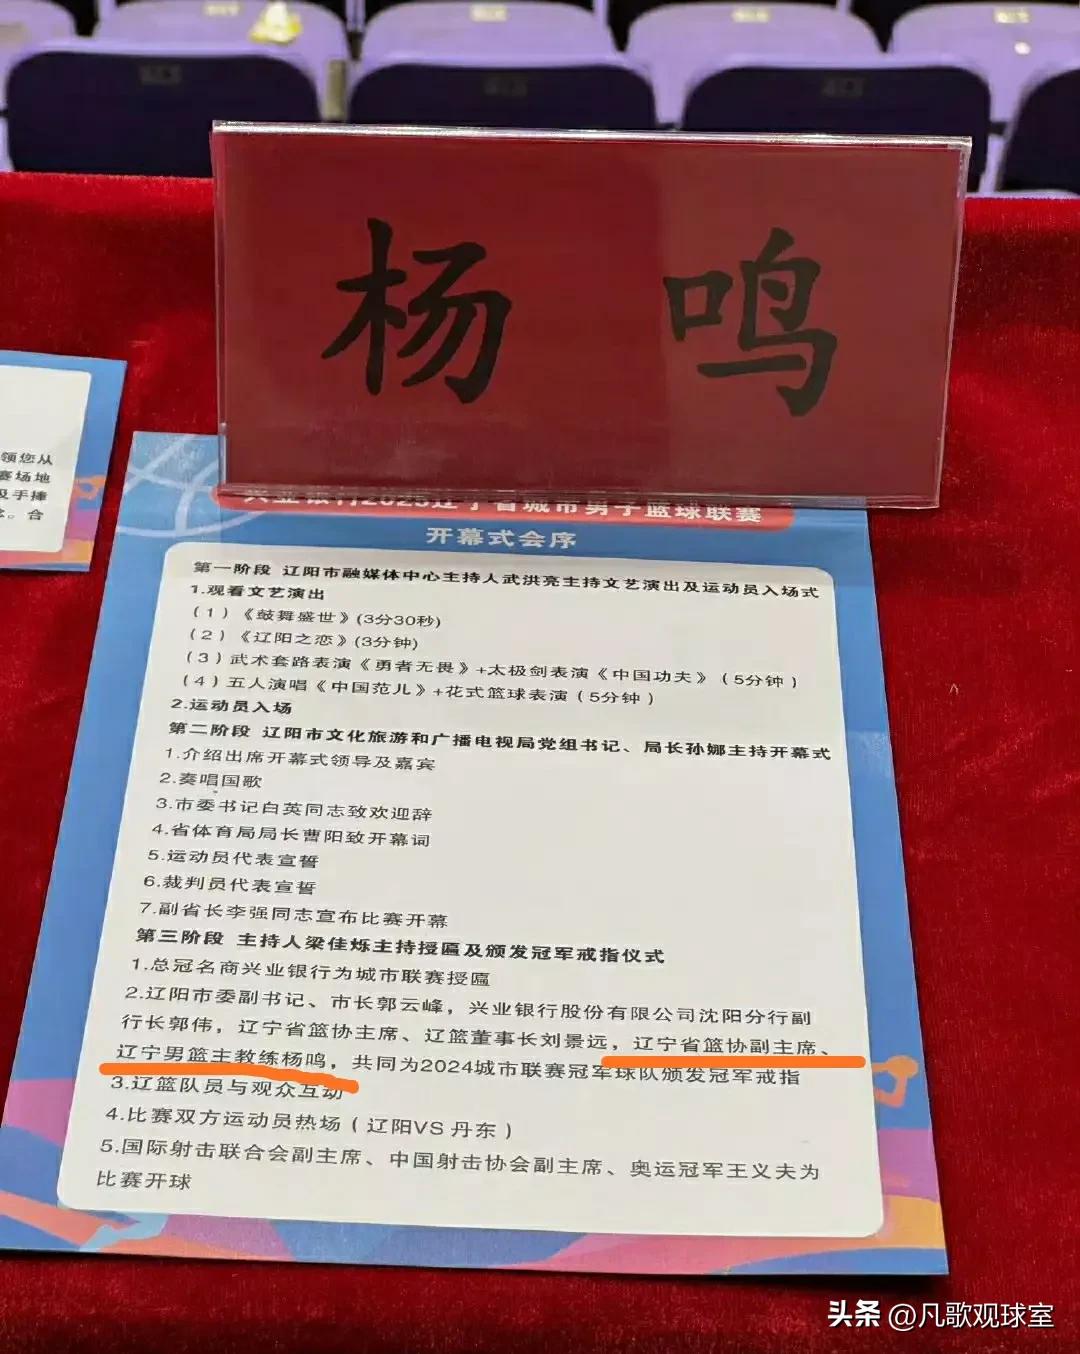 杨 鸣
领您从
赛场地
及手捧
合
兴业银行2025辽宁省城市男子篮球联赛
开幕式会序
第一阶段 辽阳市融媒体中心主持人武洪亮主持文艺演出及运动员入场式
1.观看文艺演出
（1）《鼓舞盛世》(3分30秒)
（2）《辽阳之恋》(3分钟)
（3）武术套路表演《勇者无畏》+太极剑表演《中国功夫》（5分钟）
（4）五人演唱《中国范儿》+花式篮球表演（5分钟）
2.运动员入场
第二阶段 辽阳市文化旅游和广播电视局党组书记、局长孙娜主持开幕式
1.介绍出席开幕式领导及嘉宾
2.奏唱国歌
3.市委书记白英同志致欢迎辞
4.省体育局局长曹阳致开幕词
5.运动员代表宣誓
6.裁判员代表宣誓
7.副省长李强同志宣布比赛开幕
第三阶段 主持人梁佳烁主持授匾及颁发冠军戒指仪式
1.总冠名商兴业银行为城市联赛授匾
2.辽阳市委副书记、市长郭云峰，兴业银行股份有限公司沈阳分行副
行长郭伟，辽宁省篮协主席、辽篮董事长刘景远，辽宁省篮协副主席、
辽宁男篮主教练杨鸣，共同为2024城市联赛冠军球队颁发冠军戒指
3.辽篮队员与观众互动
4.比赛双方运动员热场（辽阳VS 丹东）
5.国际射击联合会副主席、中国射击协会副主席、奥运冠军王义夫为
比赛开球
头条 @凡歌观球室